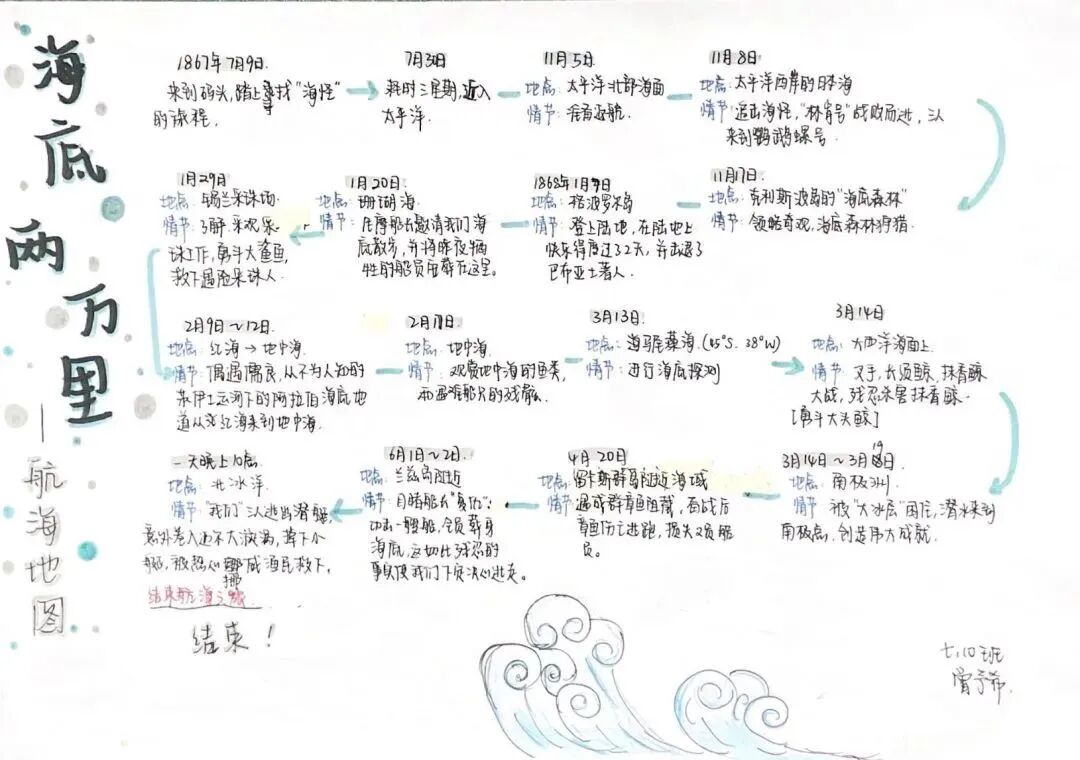 海底两万里
—航海地图
1867年7月9日.
来到码头,踏上寻找“海怪”
的旅程.
7月3日
耗时三星期,进入
太平洋.
11月5日
地点:太平洋北部海面
情节:准备返航.
11月8日
地点:太平洋西岸的日本海
情节:追击海怪,“林肯号”战败而逃,三人
来到鹦鹉螺号.
11月17日.
地点:克利斯波岛的“海底森林”
情节:领略奇观,海底森林狩猎.
1868年1月
地点:格波罗尔岛
情节:登上陆地,在陆地上
快乐得度过了2天,并击退了
巴布亚土著人.
1月20日.
地点:珊瑚海
情节:尼摩船长邀请我们海
底散步,并将昨夜牺
牲的船员安葬在这里.
1月29日
地点:锡兰采珠场
情节:了解采
珠工作,勇斗大鲨鱼,
救下遇险采珠人.
2月9日~12日.
地点:红海→地中海.
情节:偶遇儒艮,从不为人知的
苏伊士运河下的阿拉伯海底地
道从红海来到地中海.
2月
地点:地中海.
情节:观赏地中海的鱼类,
和遇难船只的残骸.
3月13日.
地点:海马尾藻海.(45°S.38°W)
情节:进行海底探测
3月14日
地点:大西洋海面上.
情节:叉手,长须鲸,抹香鲸
大战,残忍杀害抹香鲸.
[勇斗大头鲸]
3月14日~3月19日.
地点:南极洲.
情节:被“大冰层”困住,潜水来到
南极点,创造伟大成就.
4月20日
留卡斯群岛附近海域
情节:遇成群章鱼阻截,奋战后
章鱼伤亡逃跑,损失2员船
员.
6月1日~2日.
地点:兰兹岛附近
情节:目睹船长“复仇”:
功击一艘船,全员葬身
海底,这切比残忍的
事实使我们下定决心逃走.
一天晚上10点
地点:北冰洋.
情节:“我们”三人逃出潜艇,
意外卷入迈不大漩涡,掉下小
船,被热心挪威渔民救下,
结束航海之旅.
结束!
七.10班
曾予希.